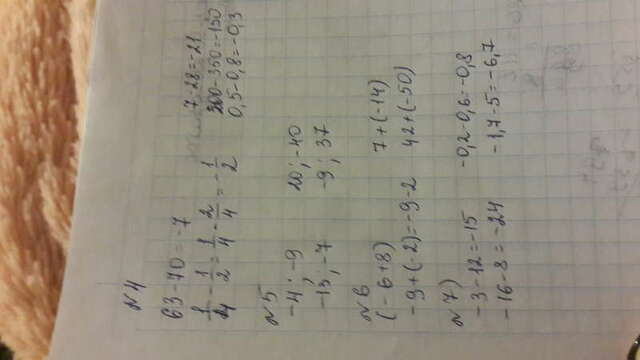 №4
63-70=-7
1/4 - 1/2 = 1/4 - 2/4 = -1/2
7-28=-21
200-350=-150
0,5-0,8=-0,3
№5
-4; -9 20; -40
-13; -7 -9; 37
№6
(-6+8) 7+(-14)
-9+(-2)=-9-2 42+(-50)
№7)
-3-12=-15 -0,2-0,6=-0,8
-16-8=-24 -1,7-5=-6,7